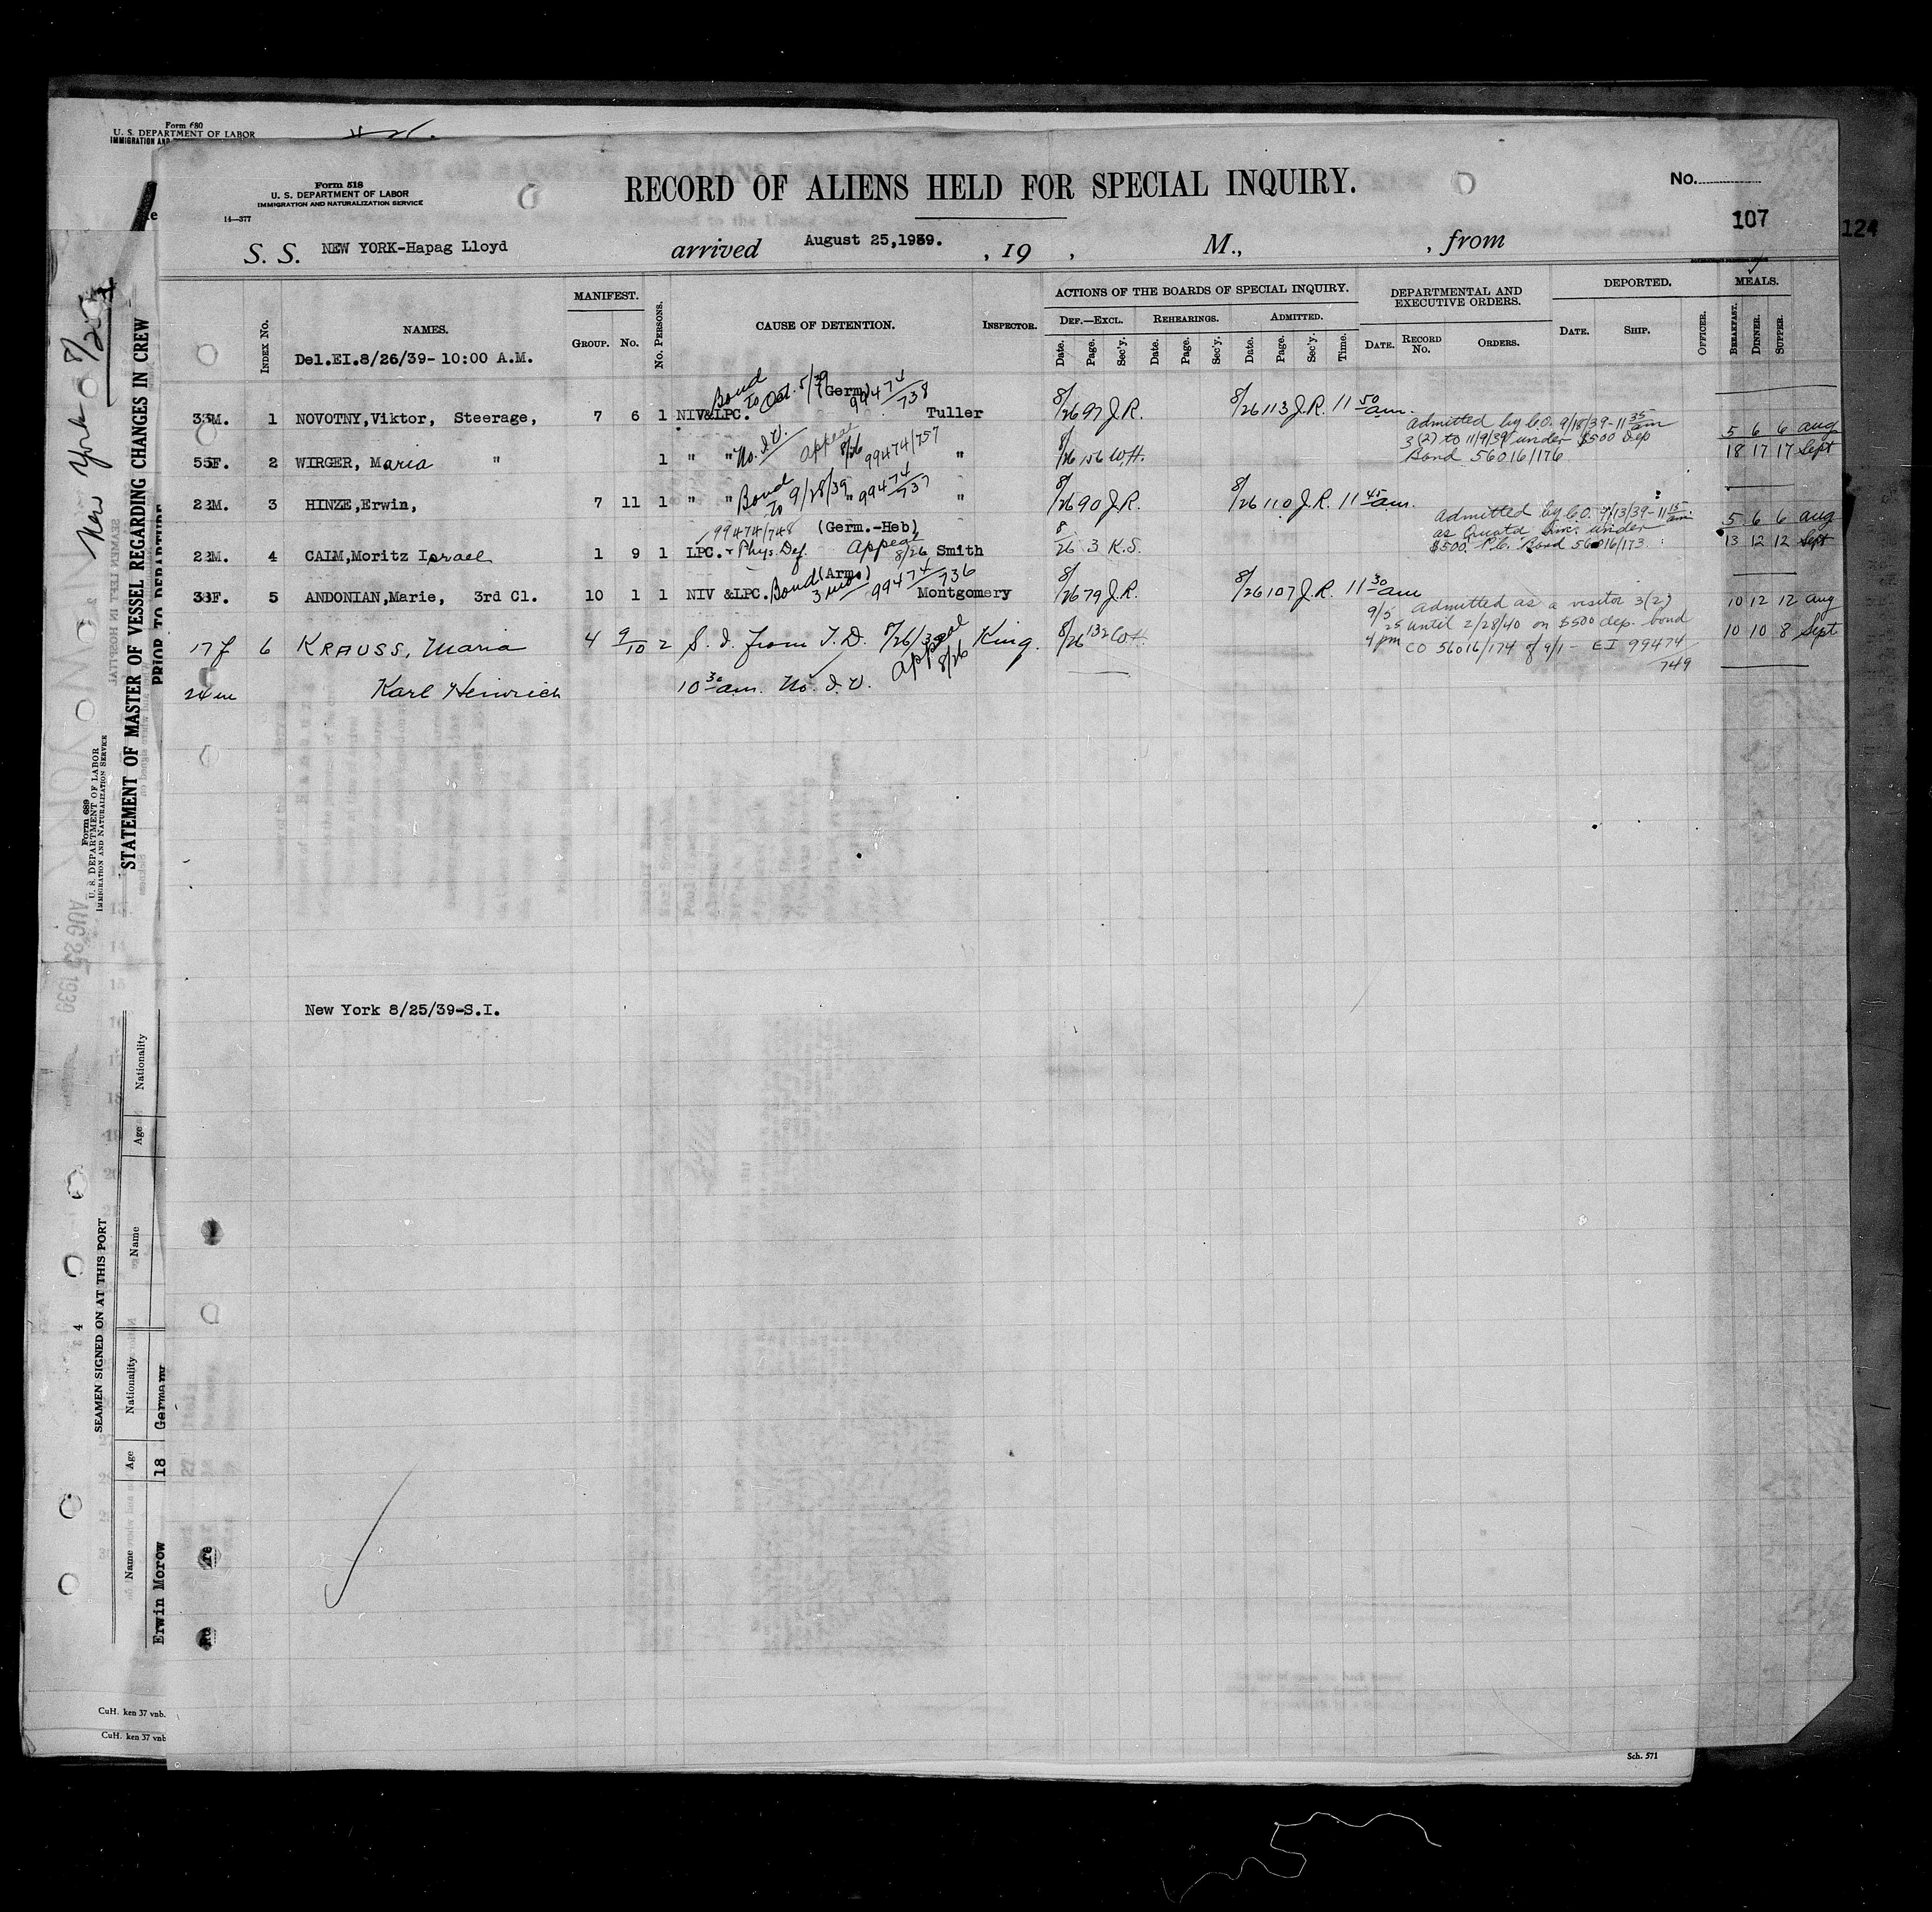 Form 680
U. S. DEPARTMENT OF LABOR
IMMIGRATION AND
Form 518
U. S. DEPARTMENT OF LABOR
IMMIGRATION AND NATURALIZATION SERVICE
14—377
RECORD OF ALIENS HELD FOR SPECIAL INQUIRY.
No.
107
124
S. S. NEW YORK-Hapag Lloyd arrived August 25,1939. , 19 , M., , from
INDEX No. NAMES. MANIFEST. GROUP. No. No. PERSONS. CAUSE OF DETENTION. INSPECTOR.
ACTIONS OF THE BOARDS OF SPECIAL INQUIRY.
DEF.—EXCL. REHEARINGS. ADMITTED.
Date. Page. Sec'y. Date. Page. Sec'y. Date. Page. Sec'y. Time.
DEPARTMENTAL AND EXECUTIVE ORDERS.
DATE. RECORD No. ORDERS.
DEPORTED.
DATE. SHIP. OFFICER.
MEALS.
BREAKFAST. DINNER. SUPPER.
Del.EI.8/26/39- 10:00 A.M.
Bond to Oct. 5/39 (Germ) 99474/738
33M. 1 NOVOTNY,Viktor, Steerage, 7 6 1 NIV&LPC. Tuller 8/26 97 J.R. 8/26 113 J.R. 11 50 am.
Admitted by CO. 9/18/39-11 35 am
3(2) to 11/9/39 under $500 Dep
Bond 56016/176
5 6 6 Aug
18 17 17 Sept
55F. 2 WIRGER, Maria " 1 " " No. I.V. Appeal 8/26 99474/757 " 8/26 156 W.H.
22M. 3 HINZE,Erwin, 7 11 1 " " Bond to 9/28/39 " 99474/737 " 8/26 90 J.R. 8/26 110 J.R. 11 45 am.
99474/748 (Germ.-Heb)
22M. 4 CAIM,Moritz Israel 1 9 1 LPC. + Phys. Def. Appeal 8/26 Smith 8/26 3 K.S.
Admitted by CO. 9/13/39-11 15 am
as under
$500. P.C. Bond 56016/173
5 6 6 Aug
13 12 12 Sept
(Arm)
33F. 5 ANDONIAN,Marie, 3rd Cl. 10 1 1 NIV &LPC. Bond 3 mos 99474/736 Montgomery 8/26 79 J.R. 8/26 107 J.R. 11 30 am
17 f 6 KRAUSS, Maria 4 9/10 2 S. I. from T. D. 8/26/39 Appeal 8/26 King. 8/26 132 W.H.
9/5 Admitted as a visitor 3(2)
25 until 2/28/40 on $500 dep. bond
4 pm CO 56016/174 of 9/1 - EI 99474/749
10 12 12 Aug
10 10 8 Sept
24 m Karl Heinrich 10 30 am. No. I. V.
New York 8/25/39-S.I.
Sch. 571
New York 8/25
STATEMENT OF MASTER OF VESSEL REGARDING CHANGES IN CREW
PRIOR TO DEPARTURE
Form 689
U. S. DEPARTMENT OF LABOR
IMMIGRATION AND NATURALIZATION SERVICE
AUG 25 1939
SEAMEN SIGNED ON AT THIS PORT
4
Name Age Nationality
Name Age Nationality
Erwin Morow 18 Germany
CuH. ken 37 vnb.
CuH. ken 37 vnb